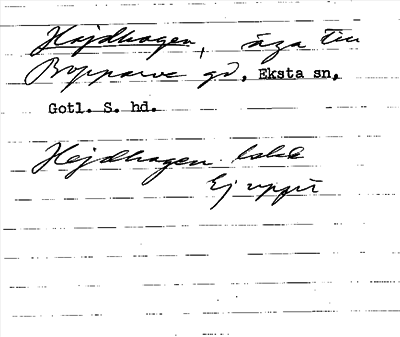 Hajdhagen, äga till
Bopparve gd, Eksta sn,
Gotl. S. hd.
Hejdhagen lokk
Ej uppt